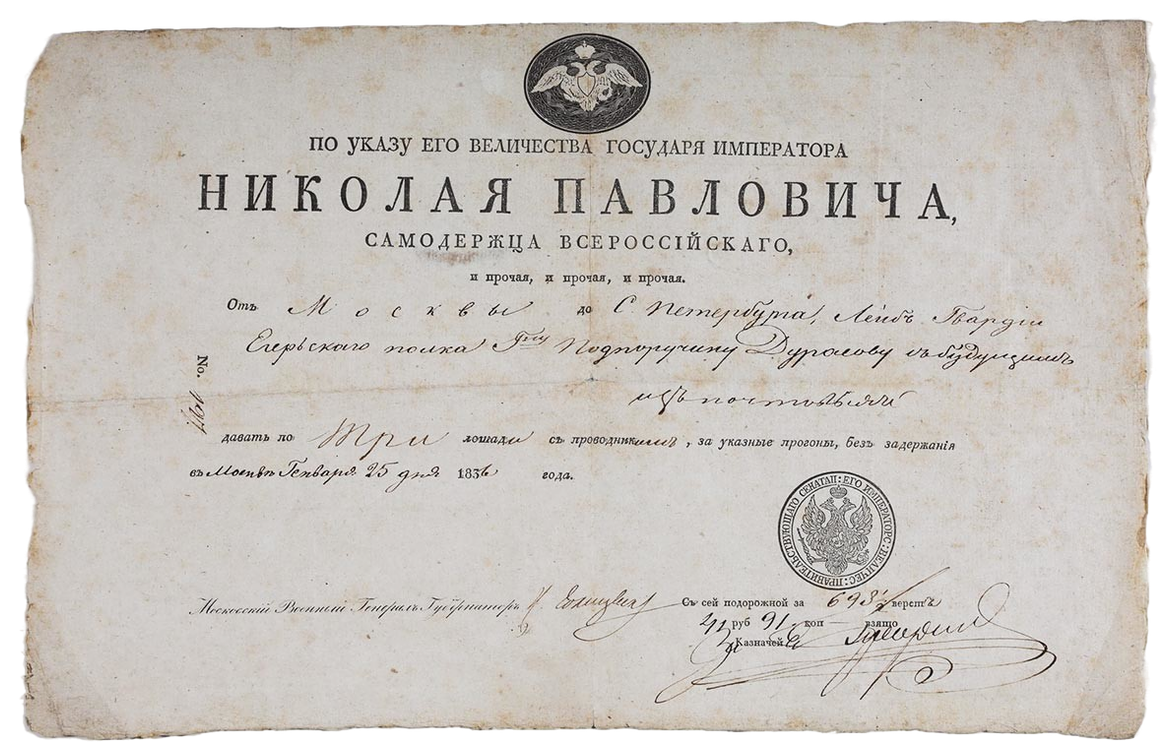 ПО УКАЗУ ЕГО ВЕЛИЧЕСТВА ГОСУДАРЯ ИМПЕРАТОРА
НИКОЛАЯ ПАВЛОВИЧА,
САМОДЕРЖЦА ВСЕРОССІЙСКАГО,
и прочая, и прочая, и прочая.
Отъ Москвы до С Петербурга, Лейбъ Гвардіи
Егерьскаго полка Гну Подпоручику Дурасову съ будущимъ
No.
давать по Три лошади съ проводникомъ, за указные прогоны, безъ задержанія
въ Москвѣ Генваря 25 дня 1836 года.
ПРАВИТЕЛЬСТВУЮЩАГО СЕНАТА П: ЕГО ИМПЕРАТОРС: ВЕЛИЧЕС:
Московскій Военный Генералъ Губернаторъ
Съ сей подорожной за 698½ верстъ
руб 91 коп взято
Казначей